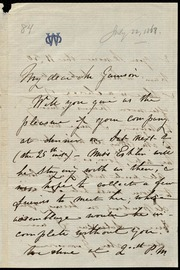 84
July 22, 1868.
W
My dear Mr Garrison
Will you give us the
pleasure of your company
at dinner on Sat. next
(the 25th inst) - Miss
be staying with us then, &
we hope to collect a few
friends to meet her, which
assemblage would be in
complete without you
We dine at 2 P.M